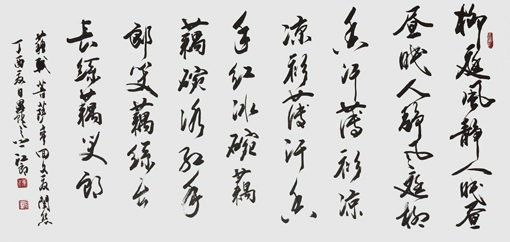 柳庭風静人眠昼
昼眠人静風庭柳
香汗薄衫凉
凉衫薄汗香
手红冰碗藕
藕碗冰红手
郎笑藕絲长
长絲藕笑郎
蘇軾菩萨蛮回文夏閨怨
丁酉夏日